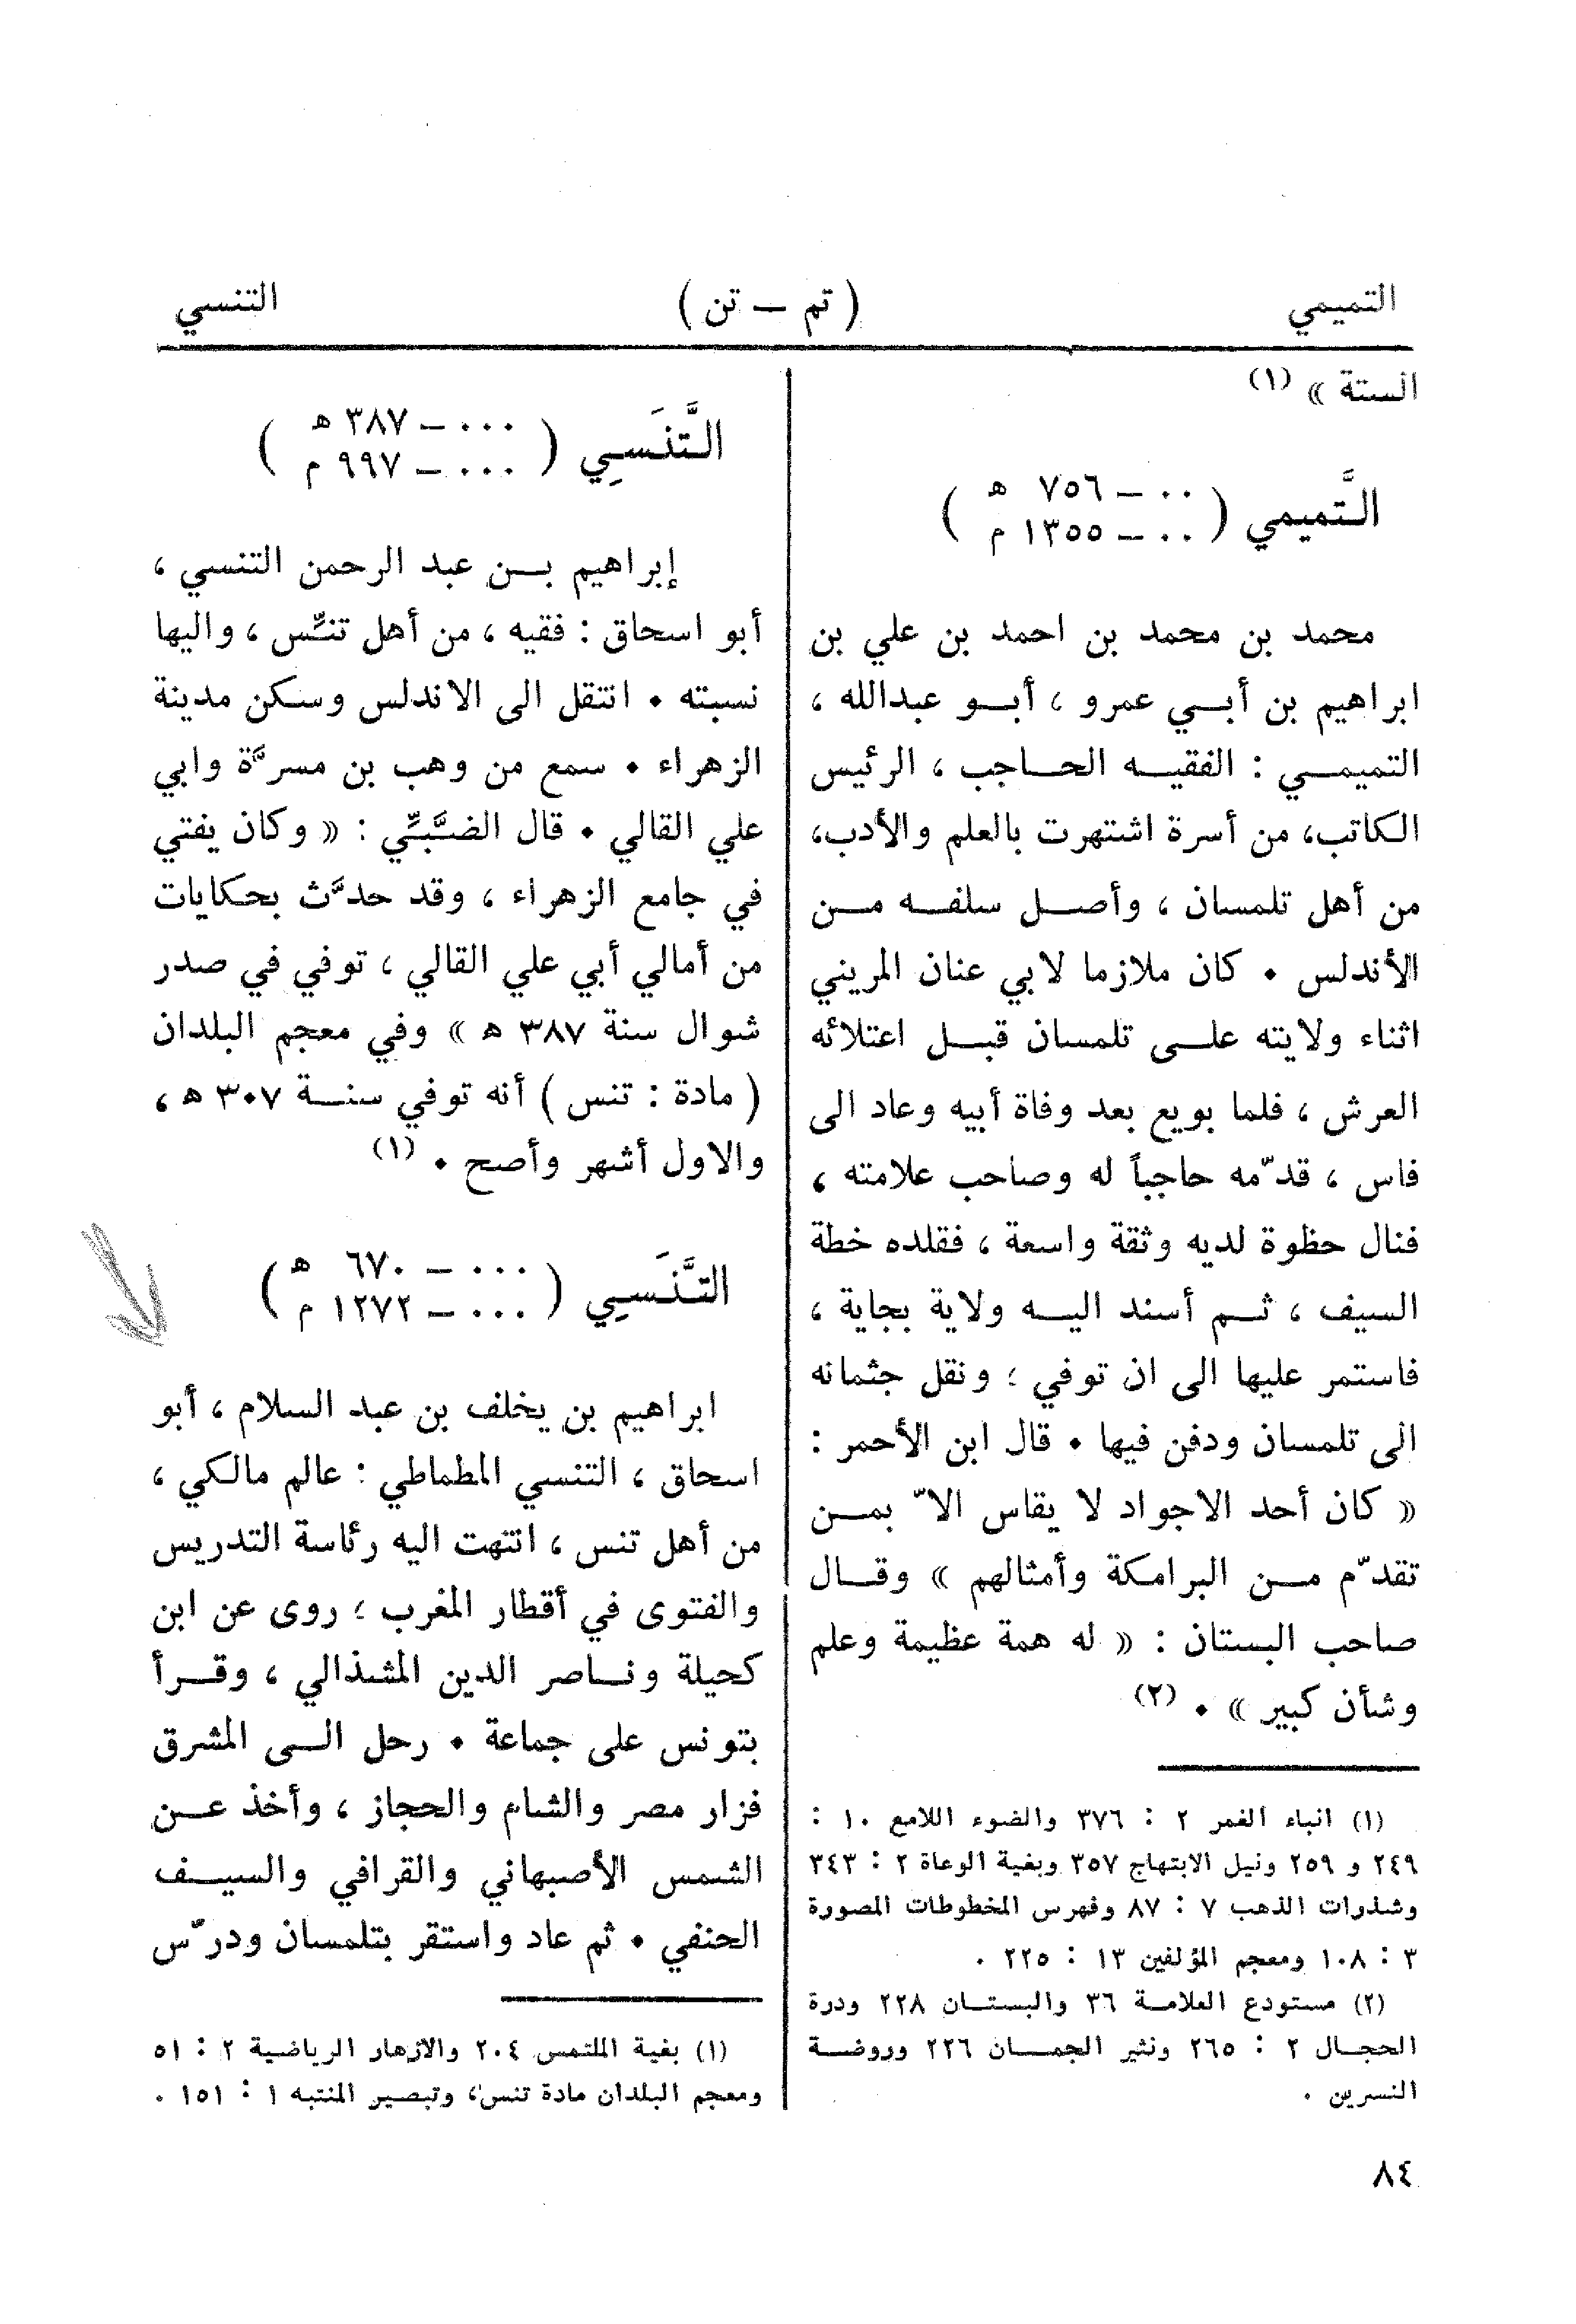 التميمي ( تم — تن ) التنسي
الستة » (١)
التَّميمي ( ٠٠ — ٧٥٦ هـ
٠٠ — ١٣٥٥ م )
محمد بن محمد بن احمد بن علي بن
ابراهيم بن أبي عمرو ، أبو عبدالله ،
التميمي : الفقيه الحاجب ، الرئيس
الكاتب، من أسرة اشتهرت بالعلم والأدب،
من أهل تلمسان ، وأصل سلفه من
الأندلس . كان ملازما لابي عنان المريني
اثناء ولايته على تلمسان قبل اعتلائه
العرش ، فلما بويع بعد وفاة أبيه وعاد الى
فاس ، قدّمه حاجباً له وصاحب علامته ،
فنال حظوة لديه وثقة واسعة ، فقلده خطة
السيف ، ثم أسند اليه ولاية بجاية ،
فاستمر عليها الى ان توفي ؛ ونقل جثمانه
الى تلمسان ودفن فيها . قال ابن الأحمر :
« كان أحد الاجواد لا يقاس الاّ بمن
تقدّم من البرامكة وأمثالهم » وقال
صاحب البستان : « له همة عظيمة وعلم
وشأن كبير » . (٢)
(١) انباء الغمر ٢ : ٣٧٦ والضوء اللامع ١٠ :
٢٤٩ و ٢٥٩ ونيل الابتهاج ٣٥٧ وبغية الوعاة ٢ : ٣٤٣
وشذرات الذهب ٧ : ٨٧ وفهرس المخطوطات المصورة
٣ : ١٠٨ ومعجم المؤلفين ١٣ : ٢٢٥ .
(٢) مستودع العلامة ٣٦ والبستان ٢٢٨ ودرة
الحجال ٢ : ٢٦٥ ونثير الجمان ٢٢٦ وروضة
النسرين .
التَّنَسِي ( ٠٠٠ — ٣٨٧ هـ
٠٠٠ — ٩٩٧ م )
إبراهيم بن عبد الرحمن التنسي ،
أبو اسحاق : فقيه ، من أهل تنَس ، واليها
نسبته . انتقل الى الاندلس وسكن مدينة
الزهراء . سمع من وهب بن مسرَّة وابي
علي القالي . قال الضَّبِّي : « وكان يفتي
في جامع الزهراء ، وقد حدَّث بحكايات
من أمالي أبي علي القالي ، توفي في صدر
شوال سنة ٣٨٧ هـ » وفي معجم البلدان
( مادة : تنس ) أنه توفي سنة ٣٠٧ هـ ،
والاول أشهر وأصح . (١)
التَّنَسِي ( ٠٠٠ — ٦٧٠ هـ
٠٠٠ — ١٢٧٢ م )
ابراهيم بن يخلف بن عبد السلام ، أبو
اسحاق ، التنسي المطماطي : عالم مالكي ،
من أهل تنس ، انتهت اليه رئاسة التدريس
والفتوى في أقطار المغرب ؛ روى عن ابن
كحيلة وناصر الدين المشذالي ، وقرأ
بتونس على جماعة . رحل الى المشرق
فزار مصر والشام والحجاز ، وأخذ عن
الشمس الأصبهاني والقرافي والسيف
الحنفي . ثم عاد واستقر بتلمسان ودرّس
(١) بغية الملتمس ٢٠٤ والازهار الرياضية ٢ : ٥١
ومعجم البلدان مادة تنس، وتبصير المنتبه ١ : ١٥١ .
٨٤